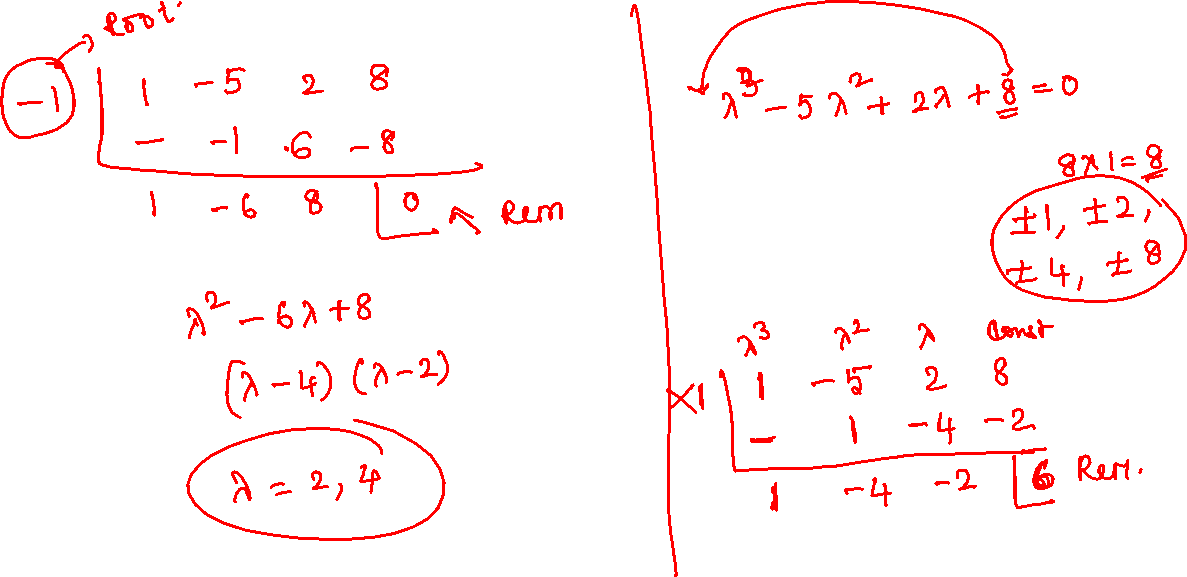 Root.
-1 | 1 -5 2 8
- -1 6 -8
1 -6 8 | 0 Rem
λ² - 6λ + 8
(λ - 4) (λ - 2)
λ = 2, 4
λ³ - 5λ² + 2λ + 8 = 0
8 x 1 = 8
±1, ±2,
±4, ±8
λ³ λ² λ Const
x1 | 1 -5 2 8
- 1 -4 -2
1 -4 -2 | 6 Rem.